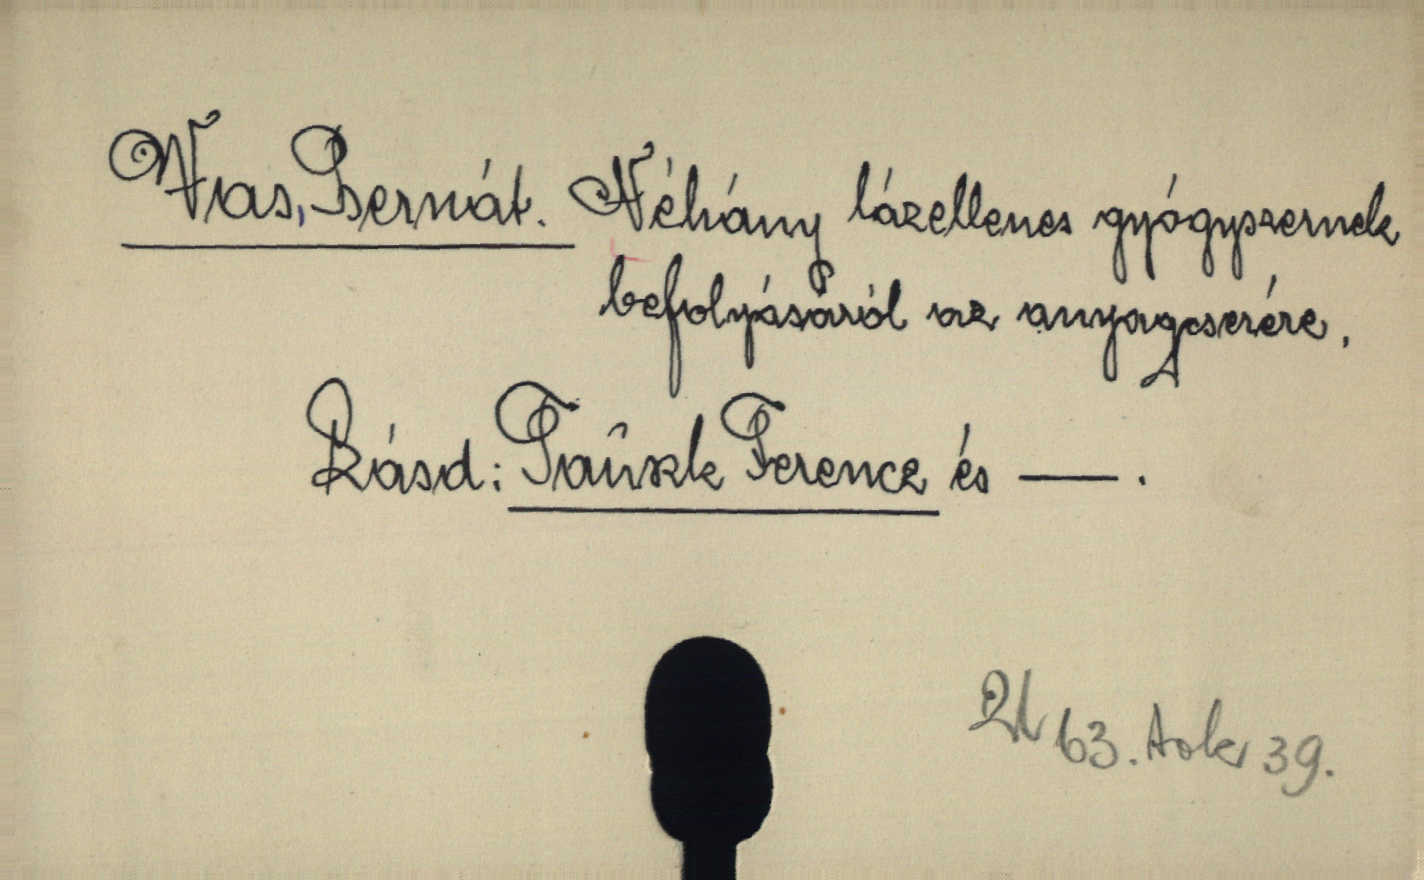 Vas, Bernát. Néhány lázellenes gyógyszernek
befolyásáról az anyagcserére.
Lásd: Tauszk Ferencz és —.
63. kok 39.